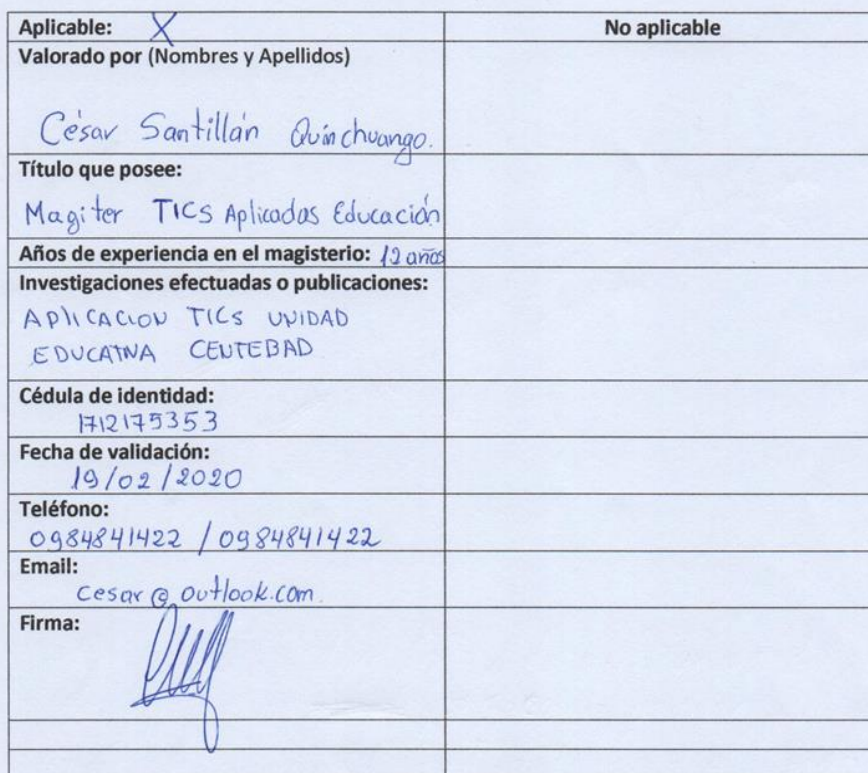 Aplicable: X No aplicable
Valorado por (Nombres y Apellidos)
César Santillán Quinchuango.
Título que posee:
Magiter TICS Aplicadas Educación
Años de experiencia en el magisterio: 12 años
Investigaciones efectuadas o publicaciones:
APLICACION TICs UNIDAD
EDUCATIVA CENTEBAD
Cédula de identidad:
1712175353
Fecha de validación:
19/02/2020
Teléfono:
0984841422 / 0984841422
Email:
cesar@outlook.com.
Firma: